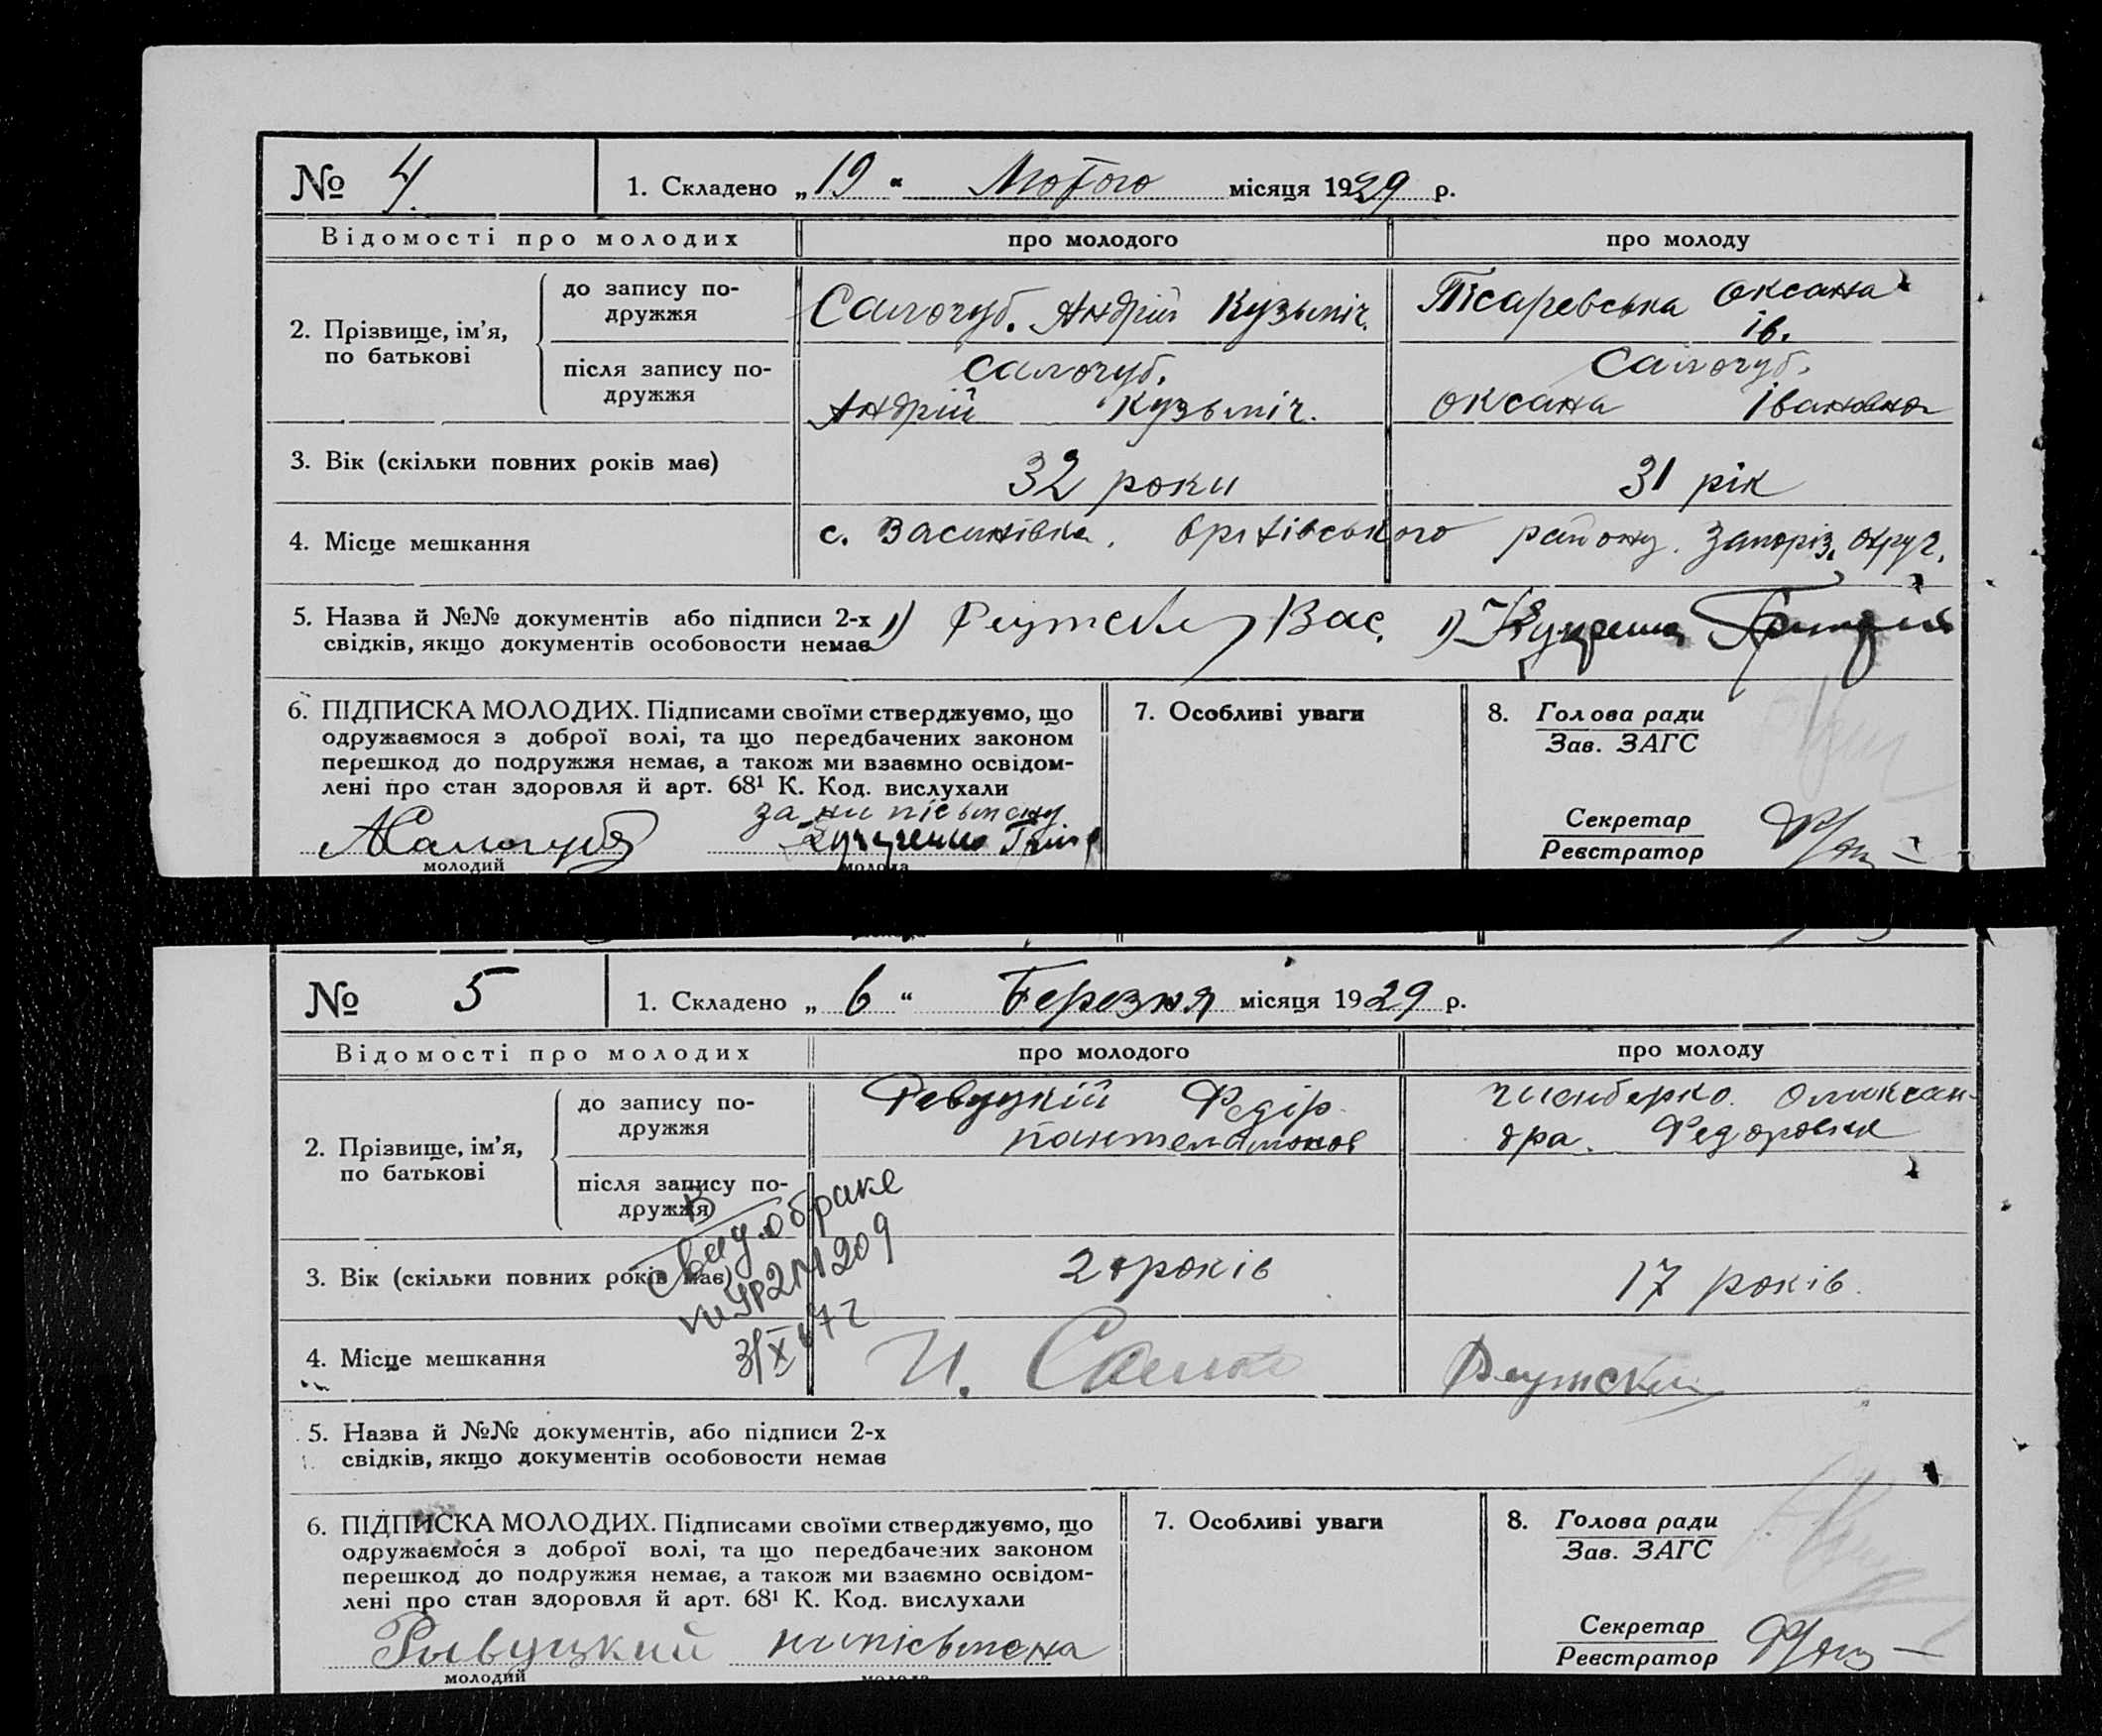 № 4. 1. Складено „19“ Лютого місяця 1929 р.
Відомості про молодих про молодого про молоду
2. Прізвище, ім'я, по батькові
до запису подружжя Салогуб. Андрій Кузьміч. Пісаревська Оксана Ів.
після запису подружжя Салогуб. Андрій Кузьміч. Салогуб. Оксана Івановна
3. Вік (скільки повних років має) 32 роки 31 рік
4. Місце мешкання с. Васинівка. Оріхівського району. Запоріз. Округ.
5. Назва й №№ документів або підписи 2-х 1) Реутский Вас. 1)
свідків, якщо документів особовости немає
6. ПІДПИСКА МОЛОДИХ. Підписами своїми стверджуємо, що
одружаємося з доброї волі, та що передбачених законом
перешкод до подружжя немає, а також ми взаємно освідом-
лені про стан здоровля й арт. 68¹ К. Код. вислухали
за ни пісьмену
АСалогуб
молодий молода
7. Особливі уваги
8. Голова ради
Зав. ЗАГС
Секретар
Реєстратор
№ 5 1. Складено „6“ Березня місяця 1929 р.
Відомості про молодих про молодого про молоду
2. Прізвище, ім'я, по батькові
до запису подружжя Ревуцкій Федір Олександра. Федоровна
після запису подружжя
В
свид. о браке
3. Вік (скільки повних років має) 17 років.
3/X 47 г
4. Місце мешкання Реутский
5. Назва й №№ документів, або підписи 2-х
свідків, якщо документів особовости немає
6. ПІДПИСКА МОЛОДИХ. Підписами своїми стверджуємо, що
одружаємося з доброї волі, та що передбачених законом
перешкод до подружжя немає, а також ми взаємно освідом-
лені про стан здоровля й арт. 68¹ К. Код. вислухали
Рывуцкий нипісьмена
молодий молода
7. Особливі уваги
8. Голова ради
Зав. ЗАГС
Секретар
Реєстратор